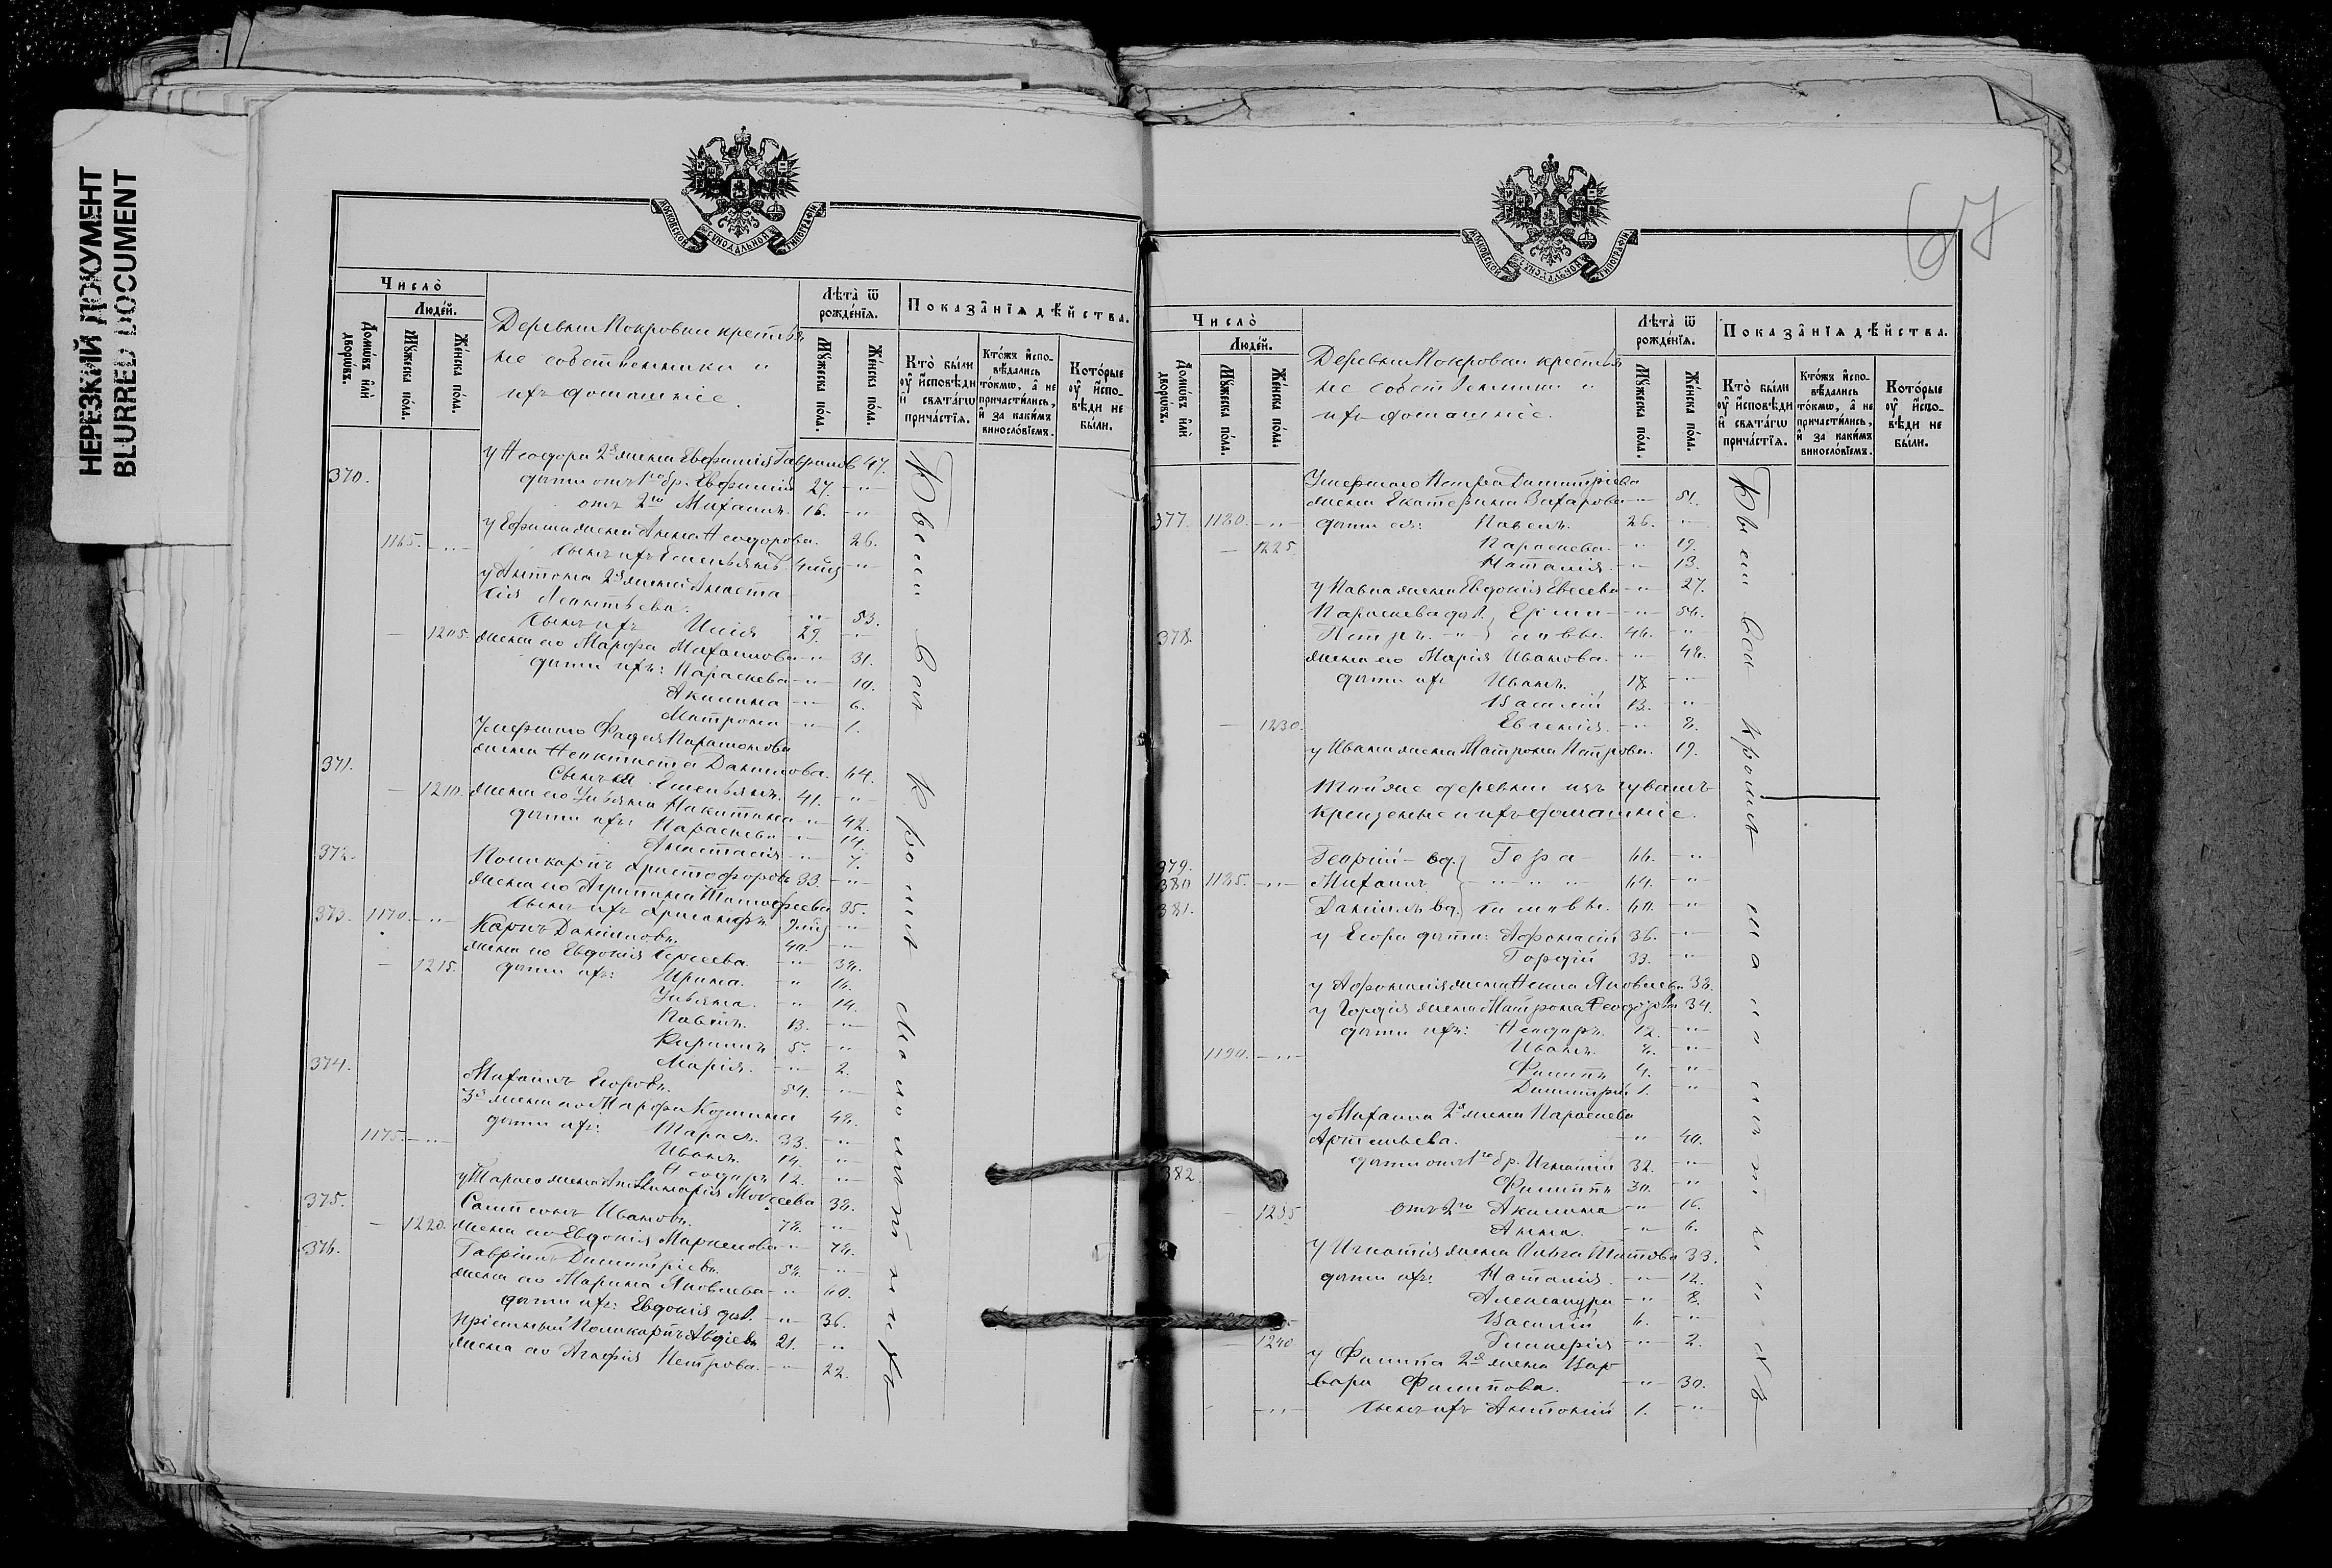 НЕРЕЗКИЙ ДОКУМЕНТ
BLURRED DOCUMENT
МОСКОВСКОЙ СѴНОДАЛЬНОЙ ТИПОГРАФІИ
Число̀
Людей.
Домѡвъ и҆лѝ дворѡвъ.
Мꙋжеска по́ла.
Же́нска по́ла.
Деревни Покровки крестья
не собственники и
ихъ домашніе.
Лѣта̀ ѿ рожде́нїѧ.
Мꙋжеска по́ла.
Же́нска по́ла.
Показа̑нїѧ дѣ́йства.
Кто̀ бы́ли ᲂу҆ и҆сповѣди и҆ свѧта́гѡ прича́стїѧ.
Кто́жъ и҆спо-вѣ́дались то́кмѡ, а҆ не причасти́лись, и҆ за каки́мъ виносло́вїемъ.
Кото́рые ᲂу҆ и҆спо-вѣди не бы́ли.
у Ѳеодора 2я жена Евфимія Гаврилов 47.
370. дѣти отъ 1го бр. Евфимій 27. -"-
отъ 2го Михаилъ. 16. -"
у Ефима жена Анна Ѳеодорова. 26.
1165. -"- сынъ ихъ Емельянъ -"-
у Антона 2я жена Анаста
сія Леонтьева. -"- 53.
сынъ ихъ Илія 29. -"-
1205. жена его Марфа Михаилова -"- 31.
дѣти ихъ: Параскева -"- 10.
Акилина -"- 6.
Матрона -"- 1.
Умершаго Парамонова
371. жена Данилова. 64.
сынъ ея Емельянъ. 41. -"-
1210. жена его Ульяна Никитина -"- 42.
дѣти ихъ: Параскева -"- 14.
Анастасія -"- 7.
372. Поликарпъ Христофоровъ 33. -"-
жена его Агрипина Тимофеева 35.
сынъ ихъ -"
373. 1170. -"- Карпъ Даниловъ. 40. -"-
жена его Евдокія Сергеева. -"- 38.
1215. дѣти ихъ: Ирина. -" 16.
Ульяна. -" 14.
Павелъ. 13. -"-
Кириллъ 5. -"
Марія. -"- 2.
374. Михаилъ Егоровъ. 54. -"-
3я жена его Марфа Козмина 48.
дѣти ихъ: Тарасъ. 33. -"-
1175. -"- Иванъ. 14. -"-
Ѳеодоръ 12. -"-
у Тараса жена Моѵсеева 38.
375. Сампсонъ Ивановъ. 78. -"-
1220. жена его Евдокія Маркелова -"- 78.
376. Гавріилъ Димитріевъ. 58. -"-
жена его Марина Яковлева -" 60.
дѣти ихъ: Евдокія дѣв. -"- 36.
пріемный Поликарпъ Авдіевъ 21. -"
жена его Агафія Петрова. -"- 22.
Были вси кромѣ малолѣтнихъ
67
МОСКОВСКОЙ СѴНОДАЛЬНОЙ ТИПОГРАФІИ
Число̀
Людей.
Домѡвъ и҆лѝ дворѡвъ.
Мꙋжеска по́ла.
Же́нска по́ла.
Деревни Покровки крестья
не собственники и
ихъ домашніе.
Лѣта̀ ѿ рожде́нїѧ.
Мꙋжеска по́ла.
Же́нска по́ла.
Показа̑нїѧ дѣ́йства.
Кто̀ бы́ли ᲂу҆ и҆сповѣди и҆ свѧта́гѡ прича́стїѧ.
Кто́жъ и҆спо-вѣ́дались то́кмѡ, а҆ не причасти́лись, и҆ за каки́мъ виносло́вїемъ.
Кото́рые ᲂу҆ и҆спо-вѣди не бы́ли.
Умершаго Петра Димитріева
жена Екатерина Захарова -"- 51.
377. 1180. -"- дѣти ея: Павелъ. 26. -"-
1225. Параскева. -"- 19.
Наталія. -"- 13.
у Павла жена Евдокія Евсеева -"- 27.
Параскева дѣв. -"- 54.
378. Петръ. -"- 46. -"-
жена его Марія Иванова. -"- 48.
дѣти ихъ Иванъ. 18. -"-
Василій 13. -"
1230. Евгенія. -"- 8.
у Ивана жена Матрона Петрова. 19.
Той же деревни изъ чувашъ
крещеные и ихъ домашніе.
379. Георгій - вд. 66. -"
380 1185. -"- Михаилъ -"-"-"- 64. -"
381. Даніилъ вд. 60. -"
у Егора дѣти: Афонасій 36. -"-
Гордій 33. -"
у Афонасія жена Анна Яковлева 38.
у Гордія жена Матрона Ѳеодоров 34.
дѣти ихъ: Ѳеодоръ. 12. -"-
1190. -"- Иванъ. 8. -"
Филипъ 4. -"
Димитрій 1. -"
у Михаила 2я жена Параскева
Артемьева. -"- 40.
382 дѣти отъ 1го бр. Игнатій 32. -"-
Филипъ 30. -"
1235 отъ 2го Акилина -"- 16.
Анна. -"- 6.
у Игнатія жена Ольга Титова 33.
дѣти ихъ: Наталія. -"- 12.
Александра -"- 8.
Василій 6. -"-
1240 Гликерія -"- 2.
у Филипа 2я жена Вар
вара Филипова. -"- 30.
-"- сынъ ихъ Антоній 1. -"-
Были вси кромѣ малолѣтнихъ